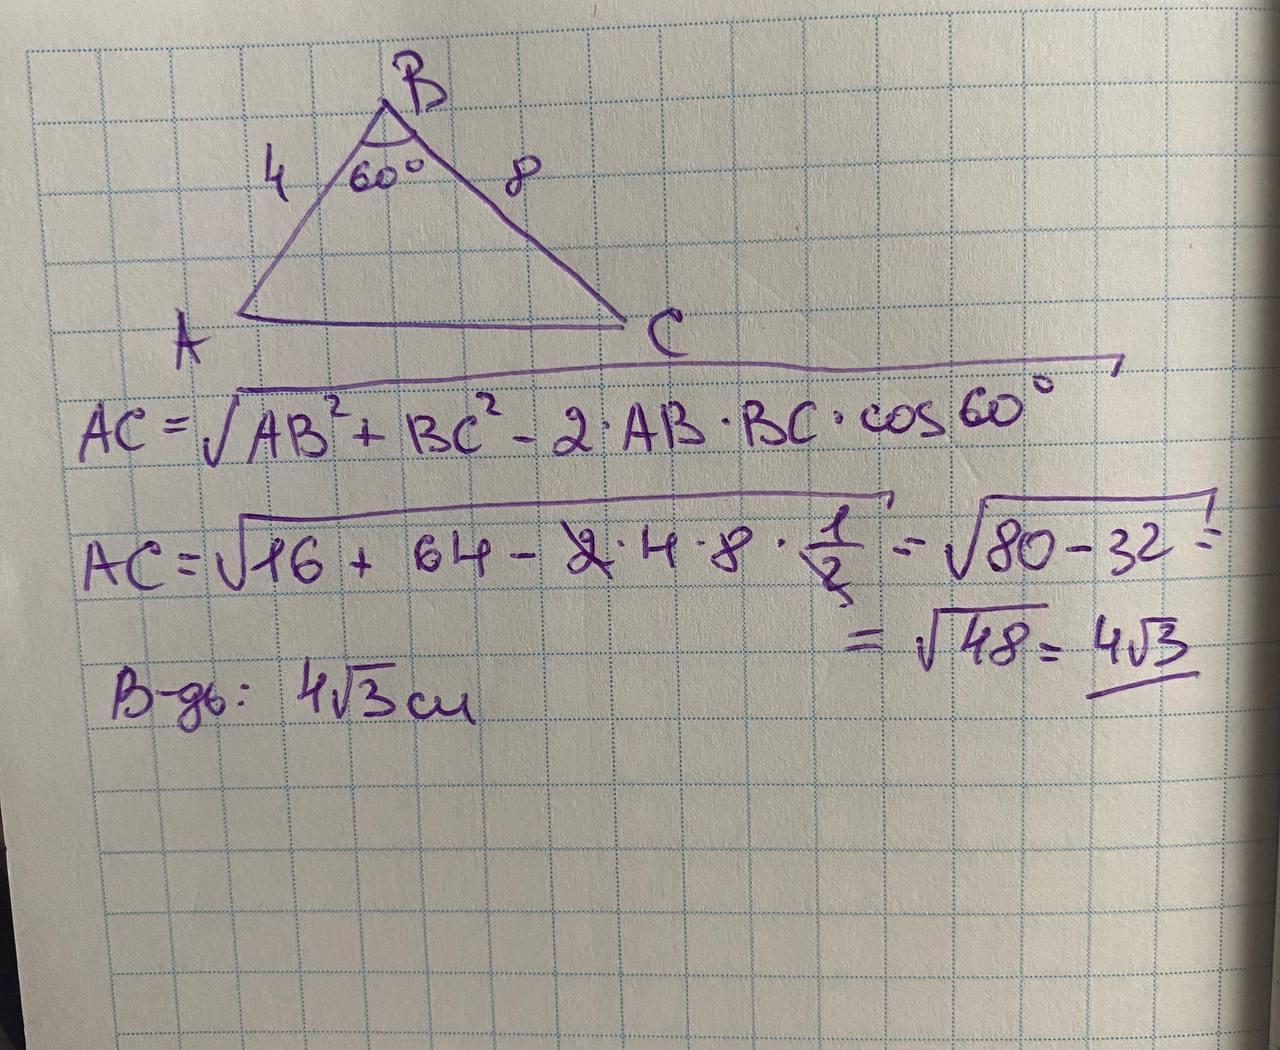 B
4
60°
8
A
C
AC = √AB² + BC² - 2·AB·BC·cos 60°
AC = √16 + 64 - 2·4·8·1/2 = √80 - 32 =
= √48 = 4√3
В-дь: 4√3 см